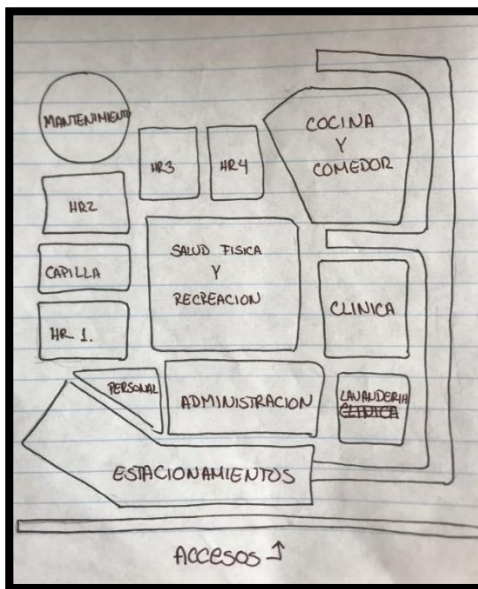 MANTENIMIENTO
HR3
HR4
COCINA
Y
COMEDOR
HR2
SALUD FISICA
Y
RECREACION
CAPILLA
CLINICA
HR 1.
PERSONAL
ADMINISTRACION
LAVANDERIA
CLINICA
ESTACIONAMIENTOS
ACCESOS ↑